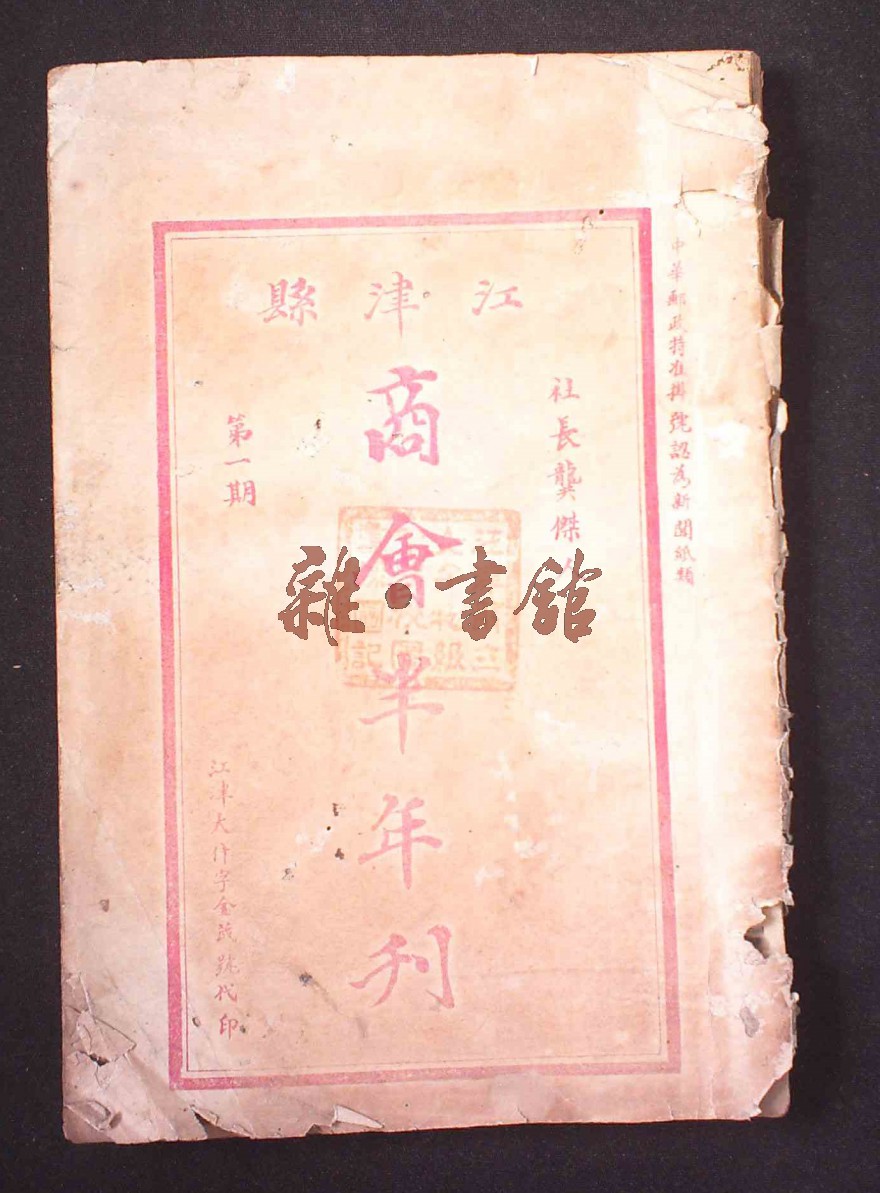 中華郵政特准掛號認為新聞紙類
江津縣
社長龔傑
商會半年刊
第一期
江津大什字金
號代印
雜·書館